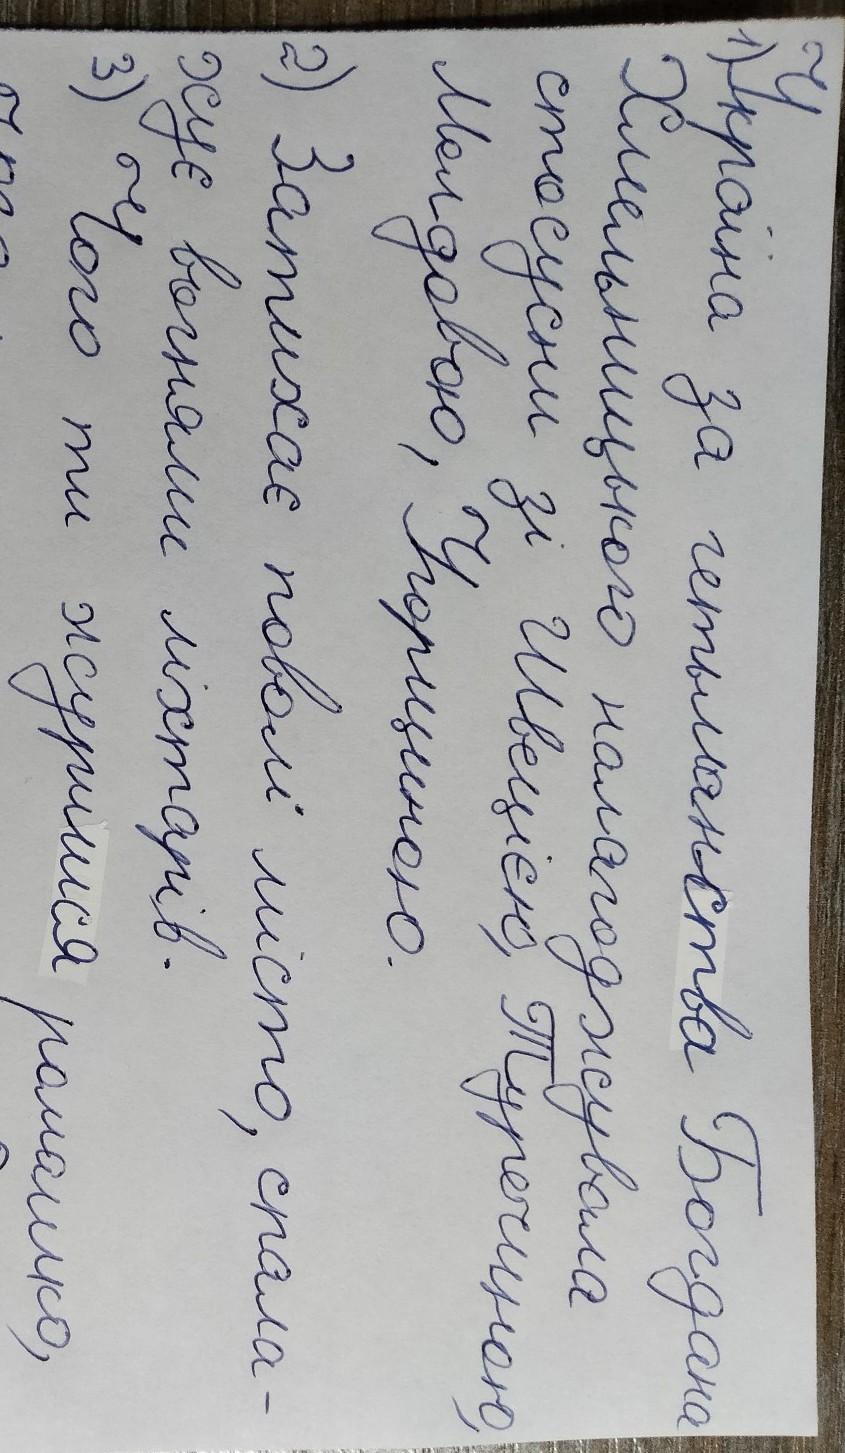 1) Україна за гетьманства Богдана
Хмельницького налагоджувала
стосунки зі Швецією, Туреччиною,
Молдовою, Угорщиною.
2) Затихає поволі місто, спала-
хує вогнями ліхтарів.
3) Чого ти журишся ромашко,